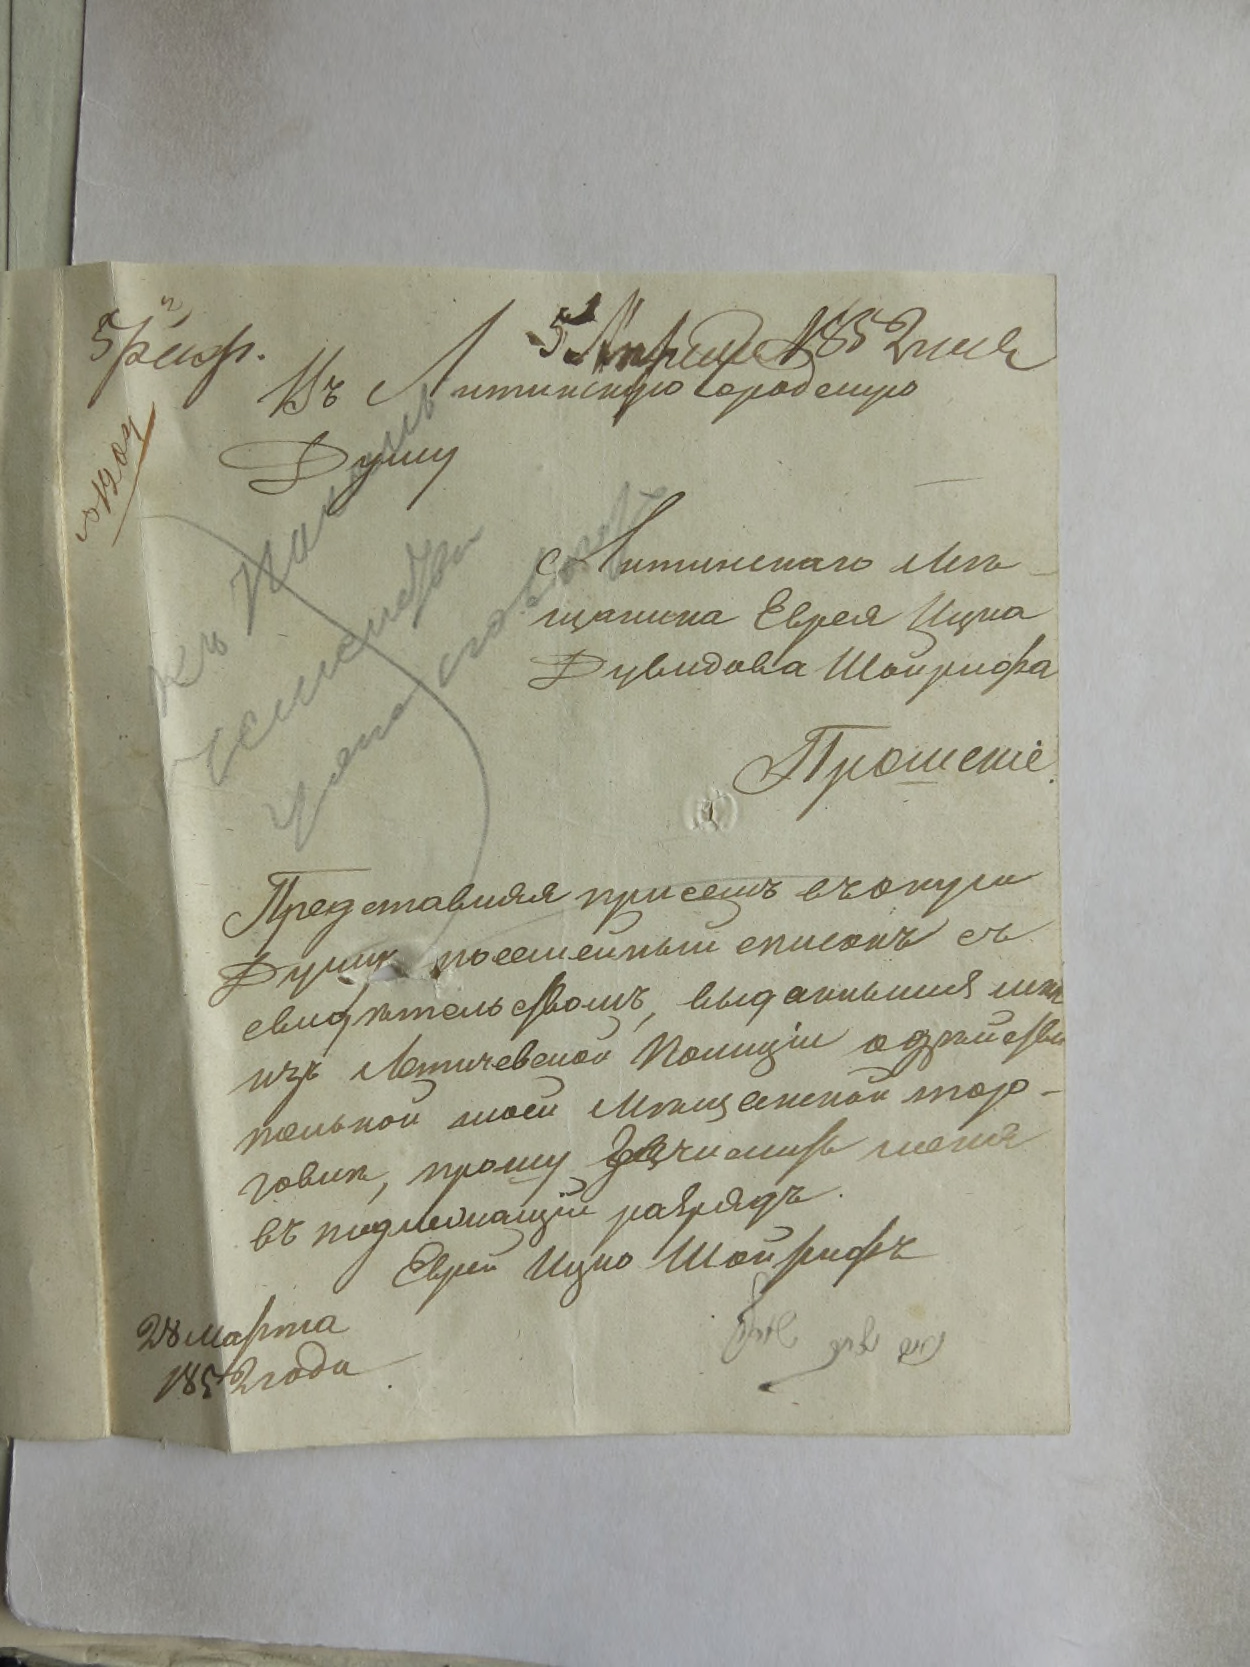 5 Апреля 1852 года
Въ Литинскую городскую
Думу
№ 1204
Литинскаго Мѣ-
щанина Еврея Ицка
Дувидова Шойрифа
Прошеніе.
Представляя присемъ въ оную
Думу посемейный списокъ съ
свидѣтельствомъ, выданнымъ мнѣ
изъ Летичевской Полиціи о дѣйстви
тельной моей Мѣщанской тор-
говли, прошу зачислить меня
въ подлежащій разрядъ.
Еврей Ицко Шойрифъ
28 Марта
1852 года